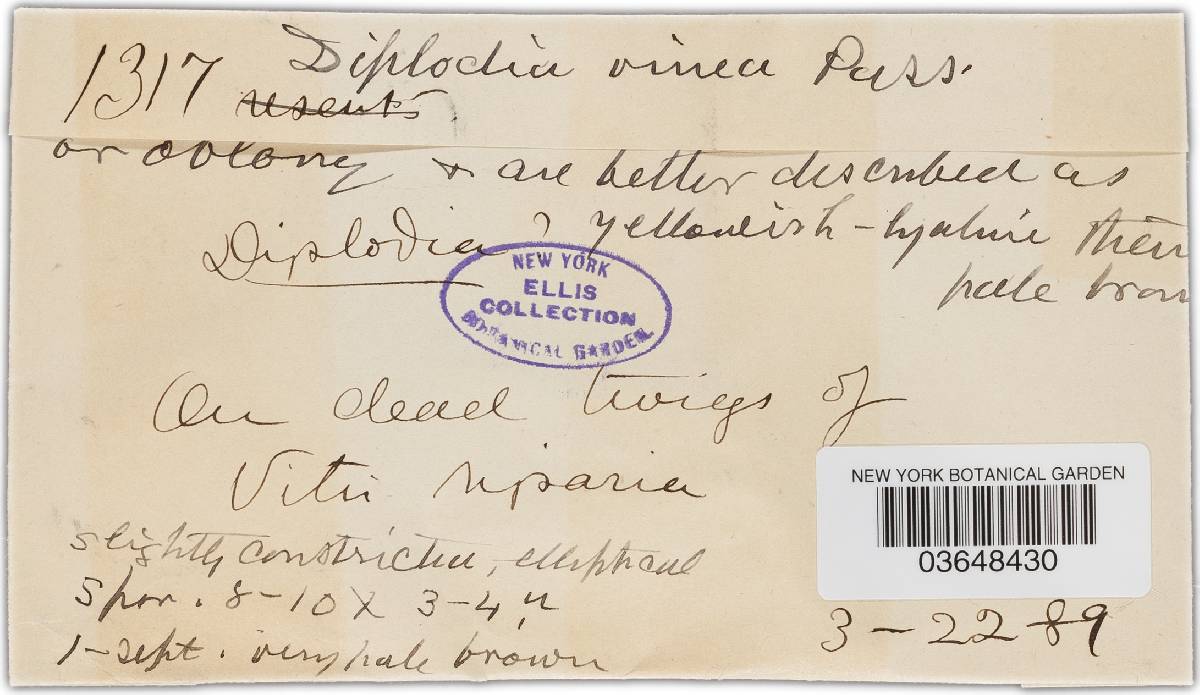 1317 Diplodia vinea Pass.
or oblong & are better described as
Diplodia? yellowish-hyaline then
pale brow
NEW YORK
ELLIS
COLLECTION
BOTANICAL GARDEN.
On dead twigs of
Vitis riparia
NEW YORK BOTANICAL GARDEN
03648430
slightly constricted, elliptical
Spor. 8-10 X 3-4 µ
1-sept. very pale brown
3-22-89